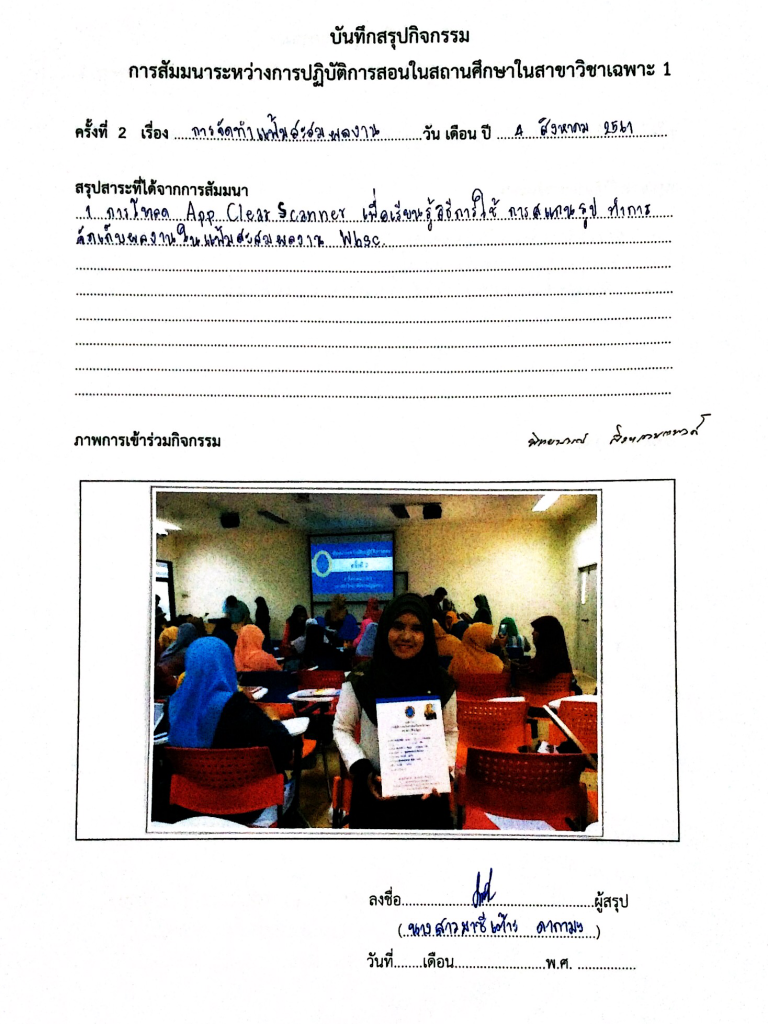 บันทึกสรุปกิจกรรม
การสัมมนาระหว่างการปฏิบัติการสอนในสถานศึกษาในสาขาวิชาเฉพาะ 1
ครั้งที่ 2 เรื่อง การจัดทำแฟ้มสะสมผลงาน วัน เดือน ปี 4 สิงหาคม 2561
สรุปสาระที่ได้จากการสัมมนา
1 การโหลด App Clear Scanner เพื่อเรียนรู้วิธีการใช้ การสแกนรูป ทำการ
จัดเก็บผลงานในแฟ้มสะสมผลงาน
ภาพการเข้าร่วมกิจกรรม
ครั้งที่ 2
ลงชื่อ ผู้สรุป
(นางสาว)
วันที่ เดือน พ.ศ.